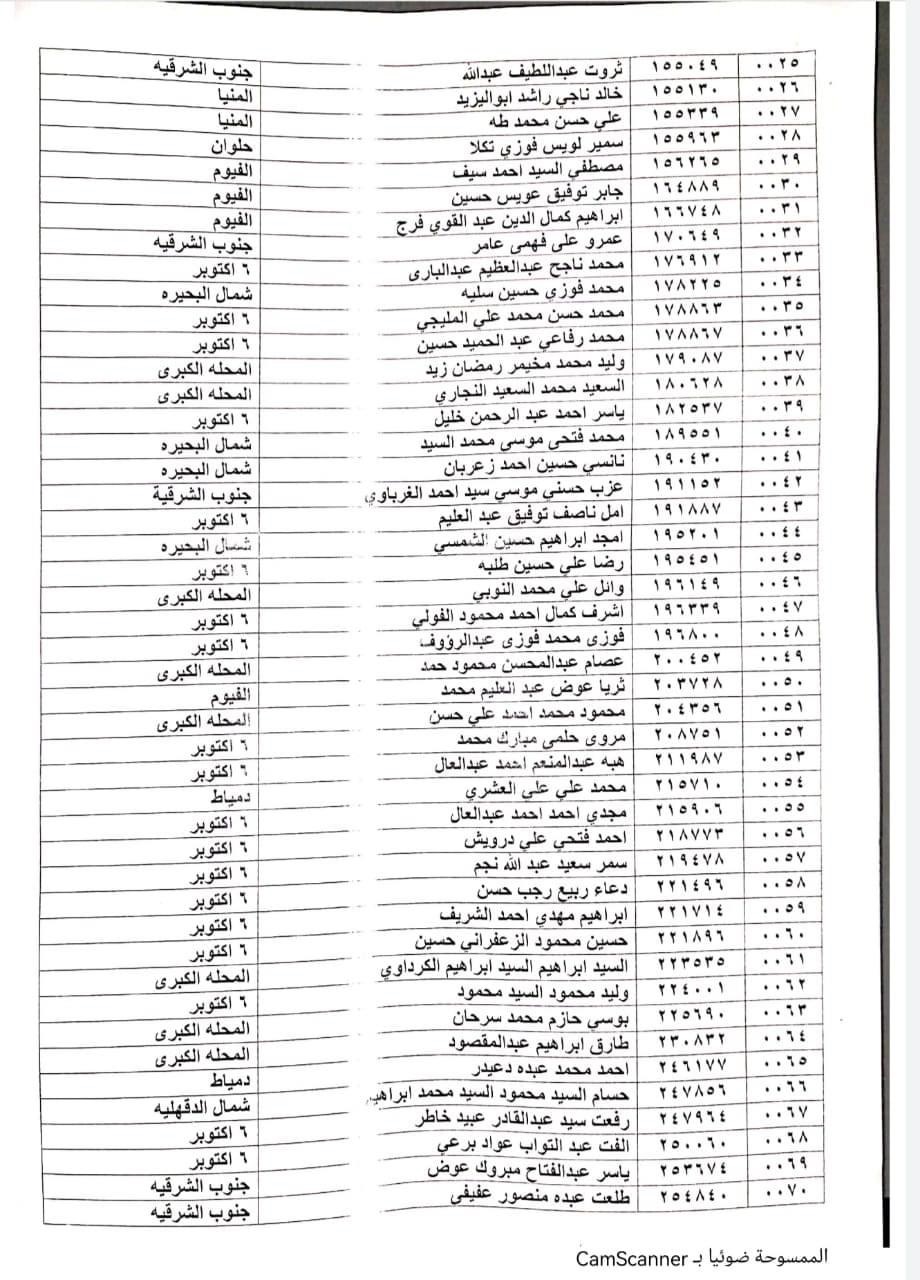 ٠٠٢٥ ١٥٥٠٤٩ ثروت عبداللطيف عبدالله جنوب الشرقيه
٠٠٢٦ ١٥٥١٣٠ خالد ناجي راشد ابواليزيد المنيا
٠٠٢٧ ١٥٥٣٣٩ علي حسن محمد طه المنيا
٠٠٢٨ ١٥٥٩٦٣ سمير لويس فوزي تكلا حلوان
٠٠٢٩ ١٥٦٢٦٥ مصطفي السيد احمد سيف الفيوم
٠٠٣٠ ١٦٤٨٨٩ جابر توفيق عويس حسين الفيوم
٠٠٣١ ١٦٦٧٤٨ ابراهيم كمال الدين عبد القوي فرج الفيوم
٠٠٣٢ ١٧٠٦٤٩ عمرو على فهمى عامر جنوب الشرقيه
٠٠٣٣ ١٧٦٩١٢ محمد ناجح عبدالعظيم عبدالبارى ٦ اكتوبر
٠٠٣٤ ١٧٨٢٢٥ محمد فوزي حسين سليه شمال البحيره
٠٠٣٥ ١٧٨٨٦٣ محمد حسن محمد علي المليجي ٦ اكتوبر
٠٠٣٦ ١٧٨٨٦٧ محمد رفاعي عبد الحميد حسين ٦ اكتوبر
٠٠٣٧ ١٧٩٠٨٧ وليد محمد مخيمر رمضان زيد المحله الكبرى
٠٠٣٨ ١٨٠٦٢٨ السعيد محمد السعيد النجاري المحله الكبرى
٠٠٣٩ ١٨٢٥٣٧ ياسر احمد عبد الرحمن خليل ٦ اكتوبر
٠٠٤٠ ١٨٩٥٥١ محمد فتحى موسى محمد السيد شمال البحيره
٠٠٤١ ١٩٠٤٣٠ نانسي حسين احمد زعربان شمال البحيره
٠٠٤٢ ١٩١١٥٢ عزب حسني موسي سيد احمد الغرباوي جنوب الشرقية
٠٠٤٣ ١٩١٨٨٧ امل ناصف توفيق عبد العليم ٦ اكتوبر
٠٠٤٤ ١٩٥٢٠١ امجد ابراهيم حسين الشمسي شمال البحيره
٠٠٤٥ ١٩٥٤٥١ رضا علي حسين طلبه ٦ اكتوبر
٠٠٤٦ ١٩٦١٤٩ وائل علي محمد النوبي المحله الكبرى
٠٠٤٧ ١٩٦٣٣٩ اشرف كمال احمد محمود الفولي ٦ اكتوبر
٠٠٤٨ ١٩٦٨٠٠ فوزى محمد فوزى عبدالرؤوف ٦ اكتوبر
٠٠٤٩ ٢٠٠٤٥٢ عصام عبدالمحسن محمود حمد المحله الكبرى
٠٠٥٠ ٢٠٣٧٢٨ ثريا عوض عبد العليم محمد الفيوم
٠٠٥١ ٢٠٤٣٥٦ محمود محمد احمد علي حسن المحله الكبرى
٠٠٥٢ ٢٠٨٧٥١ مروى حلمى مبارك محمد ٦ اكتوبر
٠٠٥٣ ٢١١٩٨٧ هبه عبدالمنعم احمد عبدالعال ٦ اكتوبر
٠٠٥٤ ٢١٥٧١٠ محمد علي علي العشري دمياط
٠٠٥٥ ٢١٥٩٠٦ مجدي احمد احمد عبدالعال ٦ اكتوبر
٠٠٥٦ ٢١٨٧٧٣ احمد فتحي علي درويش ٦ اكتوبر
٠٠٥٧ ٢١٩٤٧٨ سمر سعيد عبد الله نجم ٦ اكتوبر
٠٠٥٨ ٢٢١٤٩٦ دعاء ربيع رجب حسن ٦ اكتوبر
٠٠٥٩ ٢٢١٧١٤ ابراهيم مهدي احمد الشريف ٦ اكتوبر
٠٠٦٠ ٢٢١٨٩٦ حسين محمود الزعفراني حسين ٦ اكتوبر
٠٠٦١ ٢٢٣٥٣٥ السيد ابراهيم السيد ابراهيم الكرداوي المحله الكبرى
٠٠٦٢ ٢٢٤٠٠١ وليد محمود السيد محمود ٦ اكتوبر
٠٠٦٣ ٢٢٥٦٩٠ بوسي حازم محمد سرحان المحله الكبرى
٠٠٦٤ ٢٣٠٨٣٢ طارق ابراهيم عبدالمقصود المحله الكبرى
٠٠٦٥ ٢٤٦١٧٧ احمد محمد عبده دعيدر دمياط
٠٠٦٦ ٢٤٧٨٥٦ حسام السيد محمود السيد محمد ابراهيم شمال الدقهليه
٠٠٦٧ ٢٤٧٩٦٤ رفعت سيد عبدالقادر عبيد خاطر ٦ اكتوبر
٠٠٦٨ ٢٥٠٠٦٠ الفت عبد التواب عواد برعي ٦ اكتوبر
٠٠٦٩ ٢٥٣٦٧٤ ياسر عبدالفتاح مبروك عوض جنوب الشرقيه
٠٠٧٠ ٢٥٤٨٤٠ طلعت عبده منصور عفيفى جنوب الشرقيه
الممسوحة ضوئيا بـ CamScanner